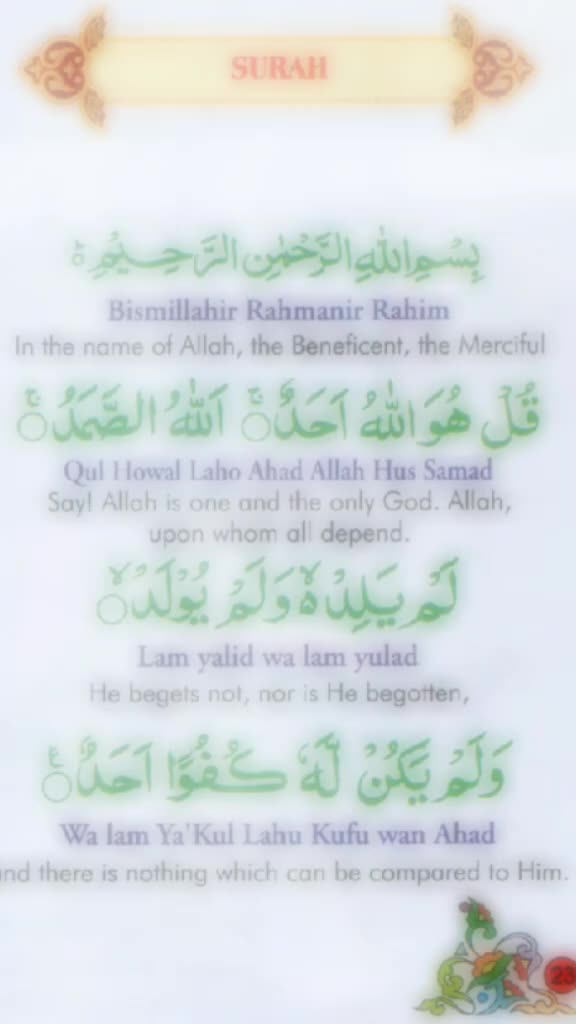 SURAH
بِسْمِ اللهِ الرَّحْمٰنِ الرَّحِيْمِ
Bismillahir Rahmanir Rahim
In the name of Allah, the Beneficent, the Merciful
قُلْ هُوَ اللهُ اَحَدٌ ۚ اَللهُ الصَّمَدُ ۚ
Qul Howal Laho Ahad Allah Hus Samad
Say! Allah is one and the only God. Allah,
upon whom all depend.
لَمْ يَلِدْ ۙ وَلَمْ يُوْلَدْ ۙ
Lam yalid wa lam yulad
He begets not, nor is He begotten,
وَلَمْ يَكُنْ لَّهٗ كُفُوًا اَحَدٌ
Wa lam Ya'Kul Lahu Kufu wan Ahad
nd there is nothing which can be compared to Him.
23